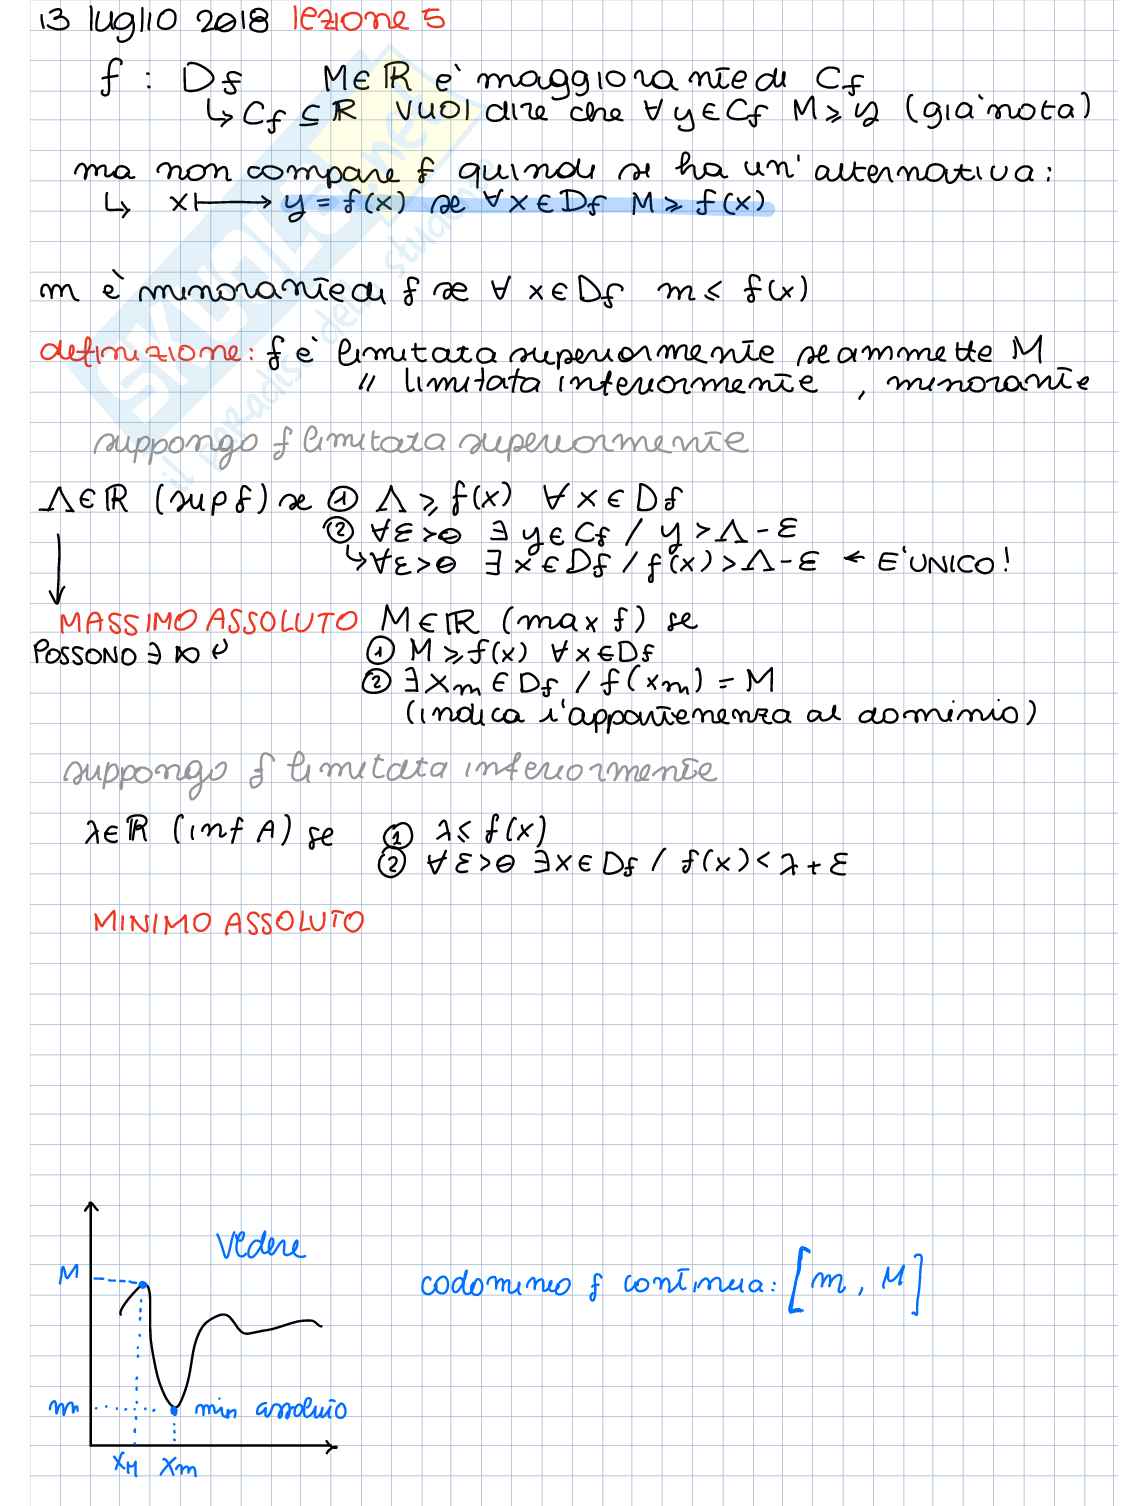 13 luglio 2018 lezione 5
f : Df M∈ℝ è maggiorante di Cf
↳ Cf ⊆ ℝ vuol dire che ∀ y∈Cf M ≥ y (già nota)
ma non compare f quindi si ha un'alternativa:
↳ x ⟼ y = f(x) se ∀x∈Df M ≥ f(x)
m è minorante di f se ∀ x∈Df m ≤ f(x)
definizione: f è limitata superiormente se ammette M
" limitata inferiormente , minorante
suppongo f limitata superiormente
Λ∈ℝ (sup f) se ① Λ ≥ f(x) ∀x∈Df
② ∀ε>0 ∃ y∈Cf / y > Λ - ε
↳ ∀ε>0 ∃ x∈Df / f(x) > Λ - ε ← E' UNICO!
MASSIMO ASSOLUTO M∈ℝ (max f) se
POSSONO ∃ ∞
① M ≥ f(x) ∀x∈Df
② ∃ xm ∈ Df / f(xm) = M
(indica l'appartenenza al dominio)
suppongo f limitata inferiormente
λ∈ℝ (inf A) se ① λ ≤ f(x)
② ∀ε>0 ∃x∈Df / f(x) < λ + ε
MINIMO ASSOLUTO
vedere
M
codominio f continua: [m, M]
m min assoluto
xM xm
SKUOLA.net
il paradiso dello studente